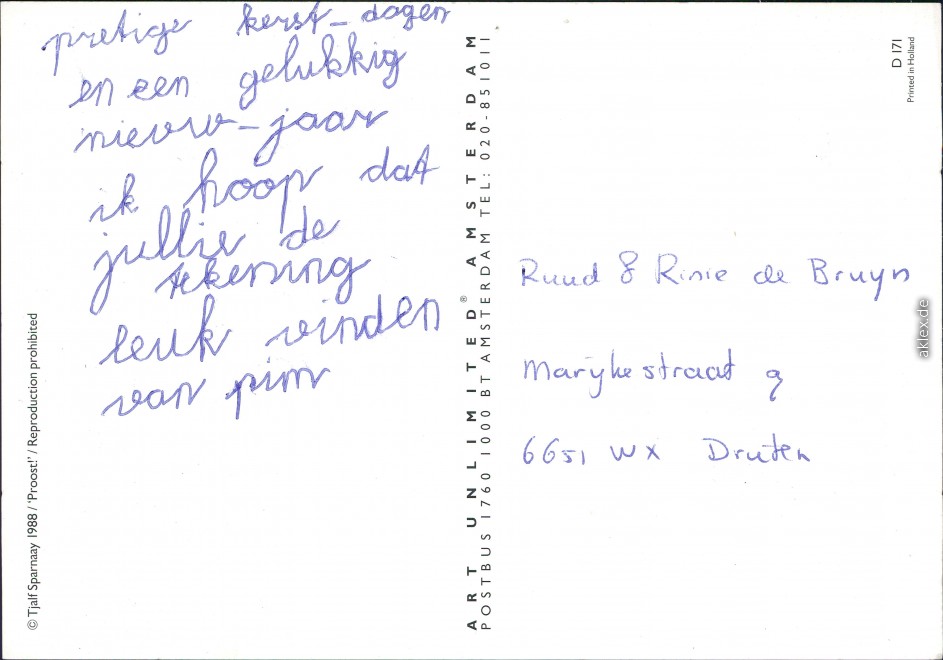 pretige kerst-dagen
en een gelukkig
nieuw-jaar
ik hoop dat
jullie de
tekening
leuk vinden
van pim
© Tjalf Sparnaay 1988 / 'Proost!' / Reproduction prohibited
ART UNLIMITED® AMSTERDAM
POSTBUS 1760 1000 BT AMSTERDAM TEL: 020-851011
D 171
Printed in Holland
Ruud & Rinie de Bruyn
Marijkestraat 9
6651 WX Druten
aklex.de